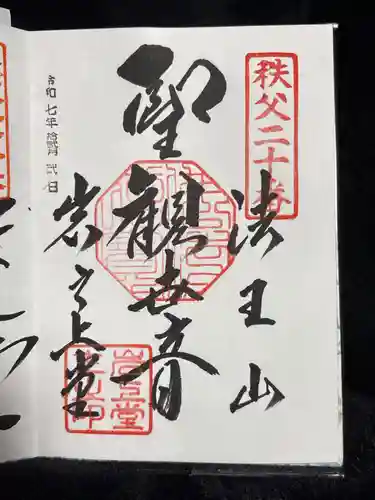 秩父二十番
法王山
聖観世音
岩之上堂
令和七年拾弐月弐日